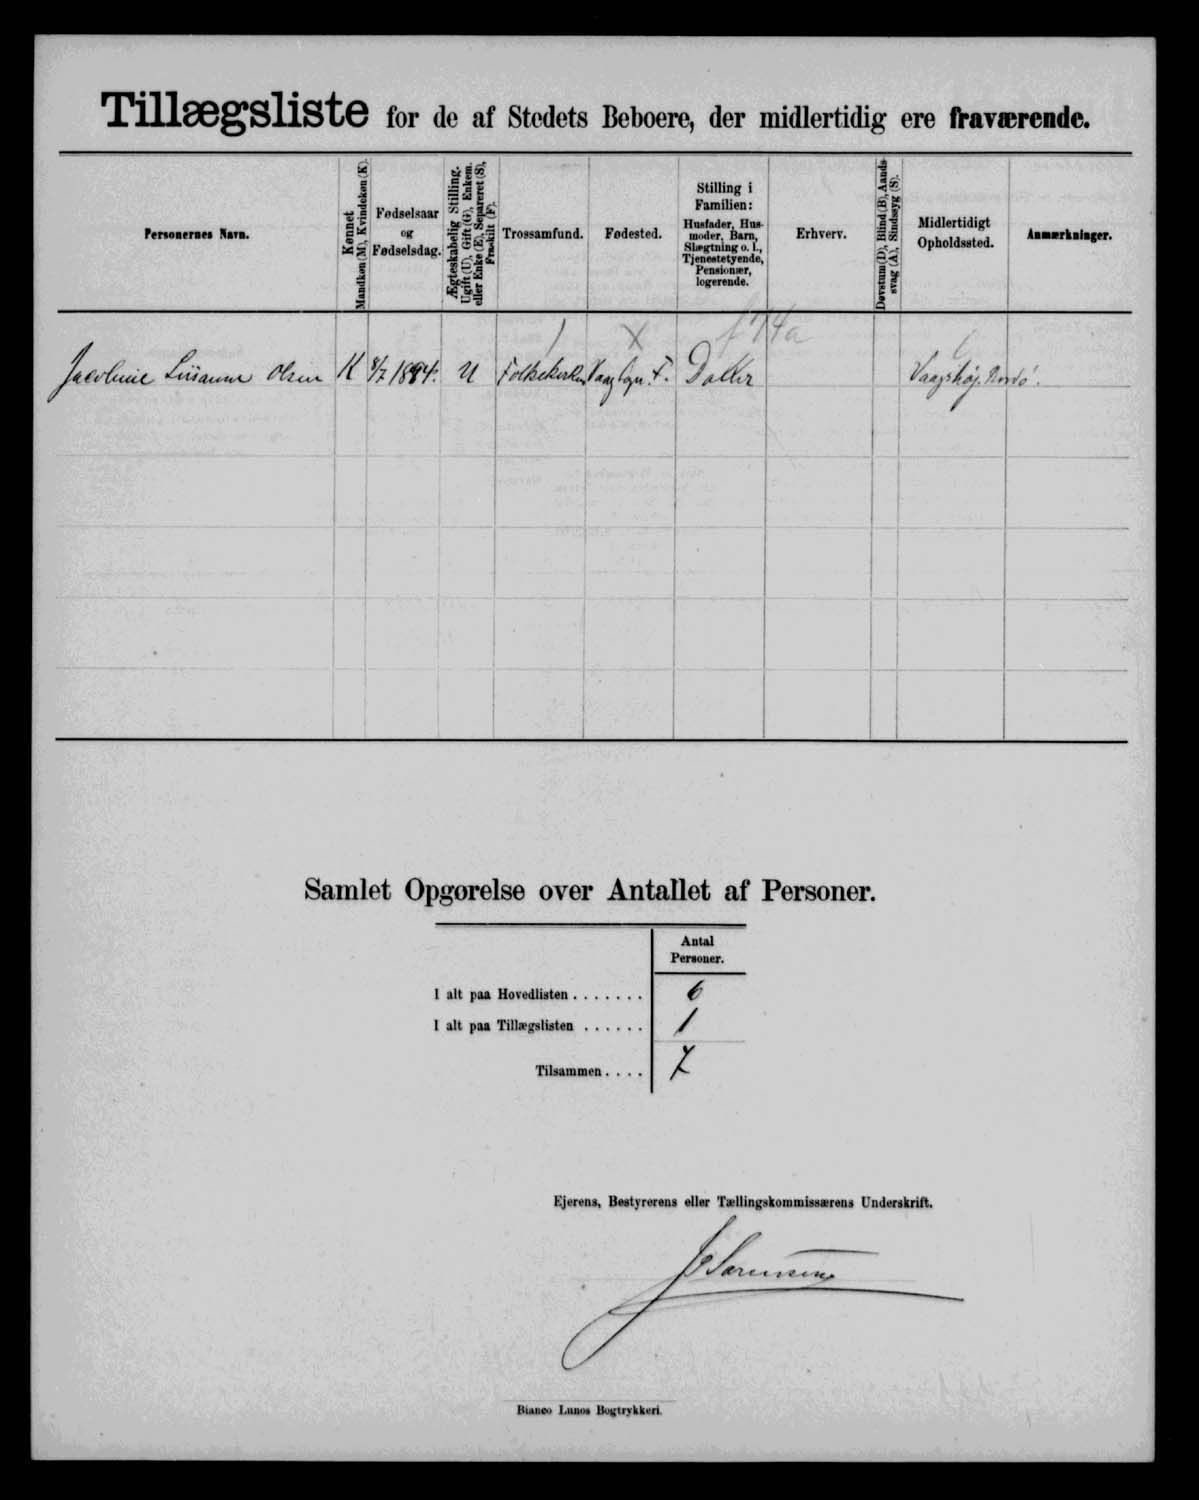 Tillægsliste for de af Stedets Beboere, der midlertidig ere fraværende.
Personernes Navn.
Kønnet
Mandkøn (M), Kvindekøn (K).
Fødselsaar
og
Fødselsdag.
Ægteskabelig Stilling.
Ugift (U), Gift (G), Enkem.
eller Enke (E), Separeret (S),
Fraskilt (F).
Trossamfund.
Fødested.
Stilling i
Familien:
Husfader, Hus-
moder, Barn,
Slægtning o. l.,
Tjenestetyende,
Pensionær,
logerende.
Erhverv.
Døvstum (D), Blind (B), Aands-
svag (A), Sindssyg (S).
Midlertidigt
Opholdssted.
Anmærkninger.
Olsen K 8/7 U Folkekirken Vaag F. Datter
Samlet Opgørelse over Antallet af Personer.
Antal
Personer.
I alt paa Hovedlisten . . . . . . . 6
I alt paa Tillægslisten . . . . . . 1
Tilsammen . . . . 7
Ejerens, Bestyrerens eller Tællingskommissærens Underskrift.
Sørensen
Bianco Lunos Bogtrykkeri.